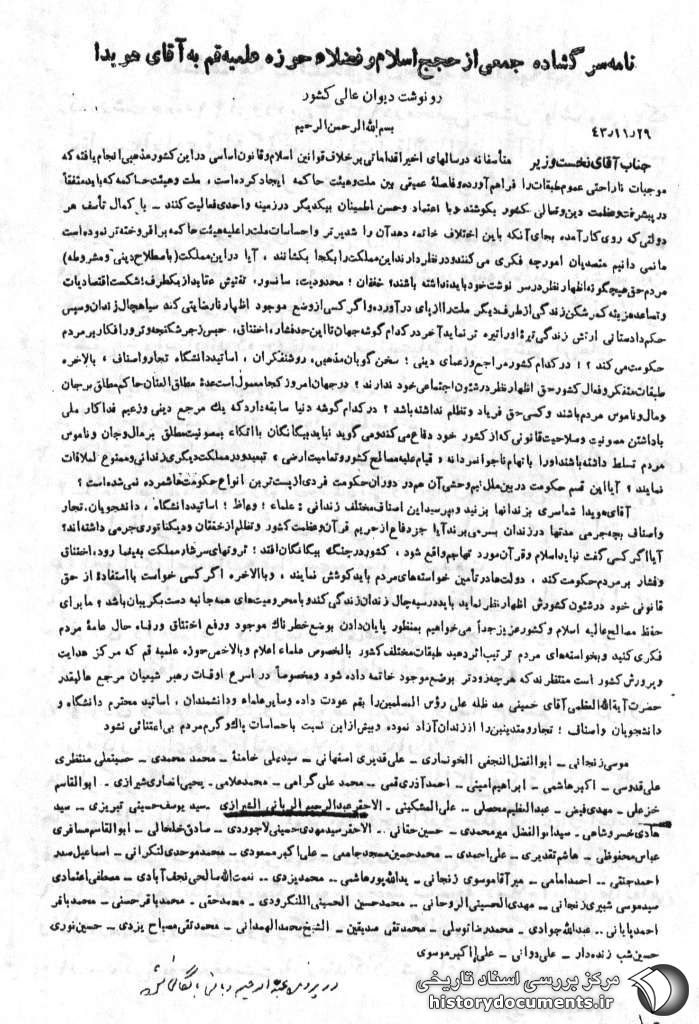 نامه سر گشاده جمعی از حجج اسلام و فضلاء حوزه علمیه قم به آقای هویدا
رونوشت دیوان عالی کشور
بسم الله الرحمن الرحیم
۴۳٫۱۱٫۲۹
جناب آقای نخست وزیر متأسفانه در سالهای اخیر اقداماتی بر خلاف قوانین اسلام و قانون اساسی در این کشور مذهبی انجام یافته که
موجبات ناراحتی عموم طبقات را فراهم آورده و فاصلهٔ عمیقی بین ملت و هیئت حاکمه ایجاد کرده است، ملت و هیئت حاکمه که باید متفقاً
در پیشرفت و عظمت دین و تعالی کشور بکوشند و با اعتماد و حسن اطمینان بیکدیگر در زمینه واحدی فعالیت کنند ـ با کمال تأسف هر
دولتی که روی کار آمده بجای آنکه باین اختلاف خاتمه دهد آن را شدیدتر و احساسات ملت را علیه هیئت حاکمه بر افروخته تر نموده است
ما نمی دانیم متصدیان امور چه فکری می کنند و در نظر دارند این مملکت را بکجا بکشانند، آیا در این مملکت (باصطلاح دینی و مشروطه)
مردم حق هیچگونه اظهار نظر در سر نوشت خود نباید داشته باشند؟ خفقان؛ محدودیت، سانسور، تفتیش عقاید از یکطرف؛ شکست اقتصادیات
و تصاعد هزینه کمر شکن زندگی از طرف دیگر ملت را از پای در آورده و اگر کسی از وضع موجود اظهار نارضایتی کند سیاهچال زندان و سپس
حکم دادستانی ارتش زندگی تیرهٔ او را تیره تر نماید آخر در کدام گوشه جهان تا این حد فشار، اختناق، حبس زجر شکنجه و ترور افکار بر مردم
حکومت می کند؟! در کدام کشور مراجع و زعمای دینی؛ سخن گویان مذهبی، روشنفکران، اساتید دانشگاه تجار و اصناف، بالاخره
طبقات متفکر و فعال کشور حق اظهار نظر در شئون اجتماعی خود ندارند؟ در جهان امروز کجا معمول است عدهٔ مطلق العنان حاکم مطلق بر جان
و مال و ناموس مردم باشند و کسی حق فریاد و تظلم نداشته باشد؟ در کدام گوشه دنیا سابقه دارد که یك مرجع دینی و زعیم فداکار ملی
با داشتن مصونیت و صلاحیت قانونی که از کشور خود دفاع می کند و می گوید نباید بیگانگان با اتکاء بمصونیت مطلق بر مال و جان و ناموس
مردم تسلط داشته باشند او را با تهام ناجوانمردانه «قیام علیه مصالح کشور و تمامیت ارضی» تبعید و در مملکت دیگری زندانی و ممنوع الملاقات
نمایند؟ آیا این قسم حکومت در بین ملل نیم وحشی آن هم در دوران حکومت فردی از پست ترین انواع حکومت ها شمرده نمی شده است؟
آقای هویدا شما سری بزندانها بزنید و بپرسید این اصناف مختلف زندانی: علماء؛ وعاظ؛ اساتید دانشگاه، دانشجویان، تجار
و اصناف بچه جرمی مدتها در زندان بسر می برند آیا جز دفاع از حریم قرآن و عظمت کشور و تظلم از خفقان و دیکتاتوری جرمی داشته اند؟
آیا اگر کسی گفت نباید اسلام و قرآن مورد تهاجم واقع شود، کشور در چنگ بیگانگان افتد؛ ثروتهای سرشار مملکت به یغما رود، اختناق
و فشار بر مردم حکومت کند، دولت ها در تأمین خواسته های مردم باید کوشش نمایند، و بالاخره اگر کسی خواست با استفادهٔ از حق
قانونی خود در شئون کشورش اظهار نظر نماید باید در سیه چال زندان زندگی کند و با محرومیت های همه جانبه دست بگریبان باشد؟ ما برای
حفظ مصالح عالیه اسلام و کشور عزیز جداً می خواهیم بمنظور پایان دادن بوضع خطر ناك موجود و رفع اختناق و رفاه حال عامهٔ مردم
فکری کنید و بخواسته های مردم ترتیب اثر دهید طبقات مختلف کشور بالخصوص علماء اعلام و بالاخص حوزه علمیه قم که مرکز هدایت
و پرورش کشور است منتظرند که هر چه زودتر بوضع موجود خاتمه داده شود و مخصوصاً در اسرع اوقات رهبر شیعیان مرجع عالیقدر
حضرت آیة الله العظمی آقای خمینی مد ظله علی رؤس المسلمین را بقم عودت داده و سایر علماء و دانشمندان، اساتید محترم دانشگاه و
دانشجویان و اصناف؛ تجار و متدینین را از زندان آزاد نموده و بیش از این نسبت باحساسات پاك و گرم مردم بی اعتنائی نشود
موسی زنجانی ـ ابوالفضل النجفی الخونساری ـ علی قدیری اصفهانی ـ سید علی خامنهٔ ـ محمد محمدی ـ حسینعلی منتظری
علی قدوسی ـ اکبر هاشمی ـ ابراهیم امینی ـ احمد آذری قمی ـ محمد علی گرامی ـ محمد علامی ـ یحیی انصاری شیرازی ـ ابوالقاسم
خزعلی ـ مهدی فیض ـ عبدالعظیم محصلی ـ علی المشکینی ـ الاحقر عبدالرحیم الربانی الشیرازی ـ سید یوسف حسینی تبریزی ـ سید
هادی خسروشاهی ـ سید ابوالفضل میرمحمدی ـ حسین حقانی ـ الاحقر سید مهدی حسینی لاجوردی ـ صادق خلخالی ـ ابوالقاسم مسافری
عباس محفوظی ـ هاشم تقدیری ـ علی احمدی ـ محمد حسین مسجد جامعی ـ علی اکبر مسعودی ـ محمد موحدی لنکرانی ـ اسماعیل صدر
احمد جنتی ـ احمد امامی ـ میر آقا موسوی زنجانی ـ یدالله پورهاشمی ـ محمد یزدی ـ نعمت الله صالحی نجف آبادی ـ مصطفی اعتمادی
سید موسی شبیری زنجانی ـ مهدی الحسینی الروحانی ـ محمد حسین الحسینی اللنگرودی ـ محمد حقی ـ محمد باقر حسنی ـ محمد باقر
احمد پایانی ـ عبدالله جوادی ـ محمد رضا توسلی ـ محمد تقی صدیقین ـ الشیخ محمد الهمدانی ـ محمد تقی مصباح یزدی ـ حسین نوری
حسین شب زنده دار ـ علی دوانی ـ علی اکبر موسوی
در پرونده عبدالرحیم ربانی بایگانی شود
مرکز بررسی اسناد تاریخی
historydocuments.ir